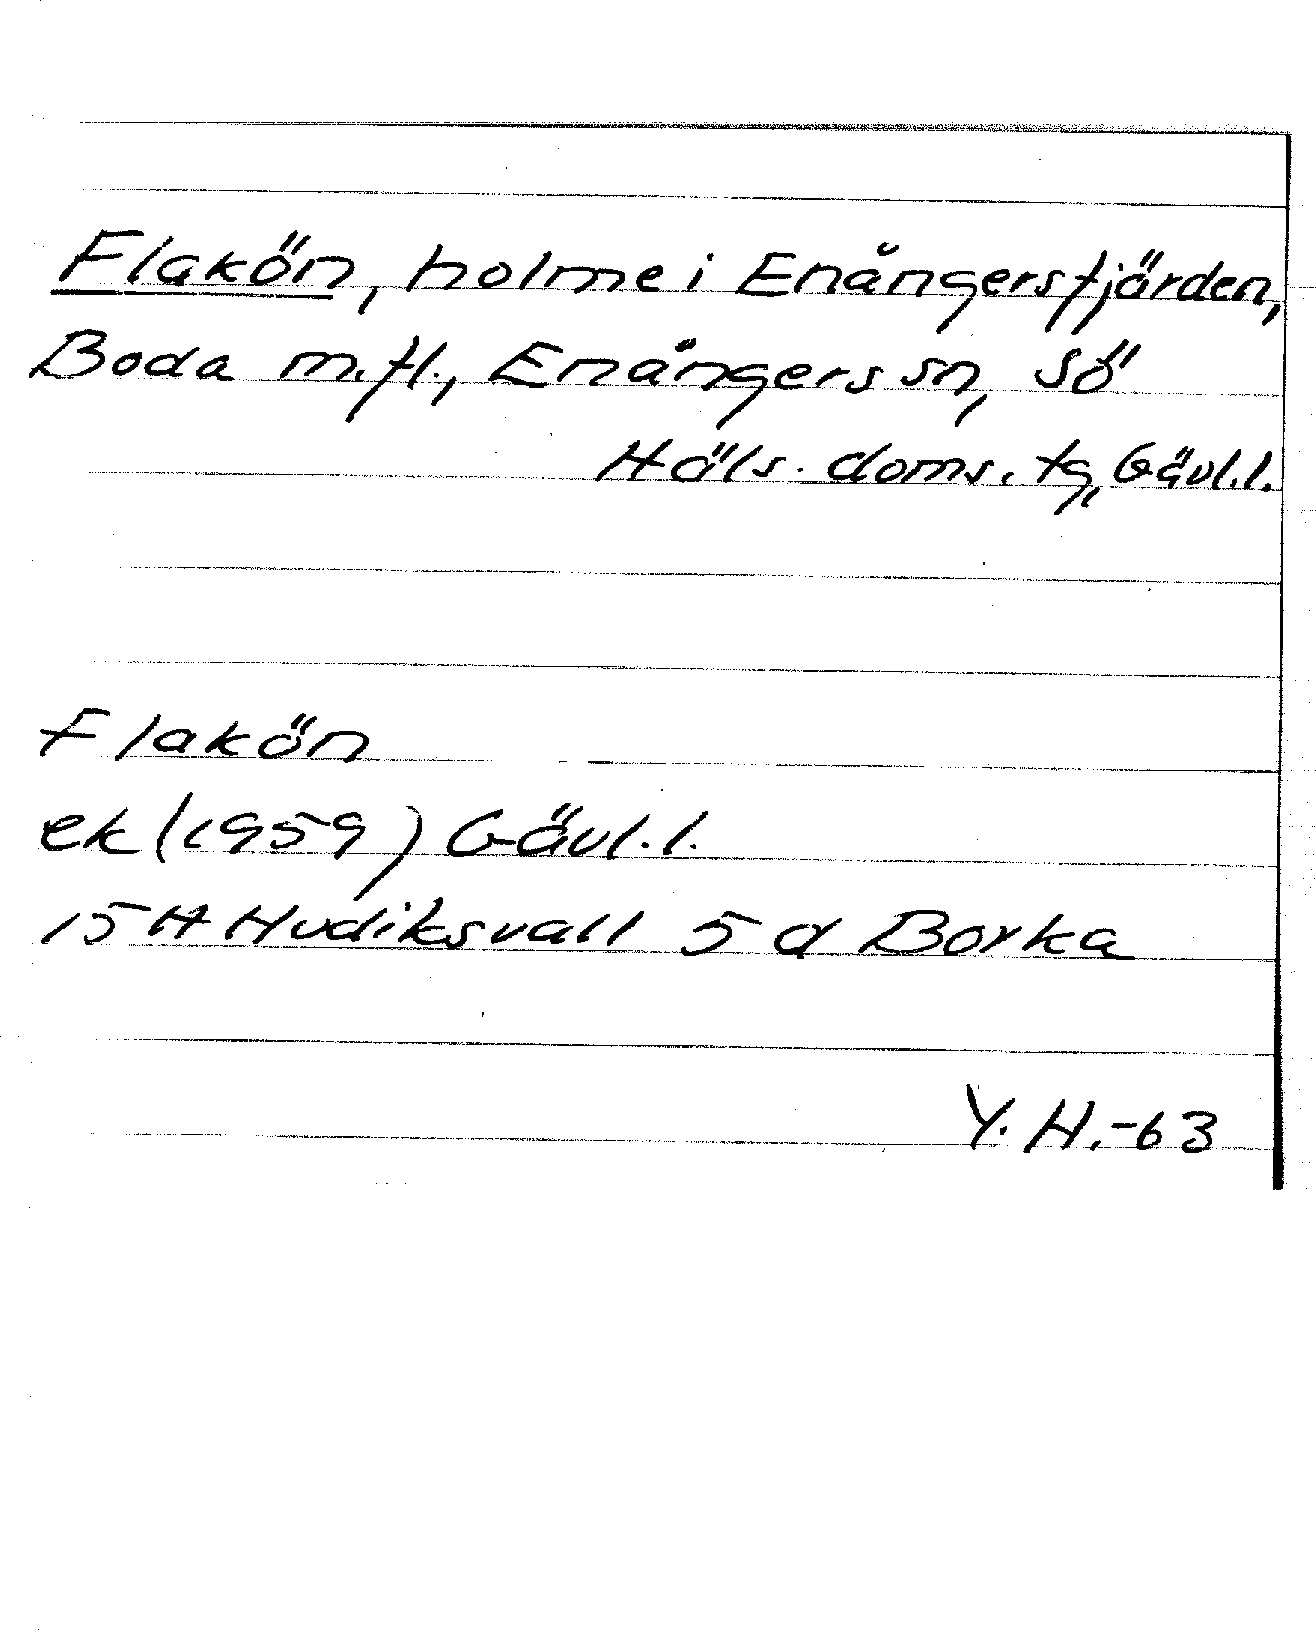 Flakön, holme i Enångersfjärden,
Boda m.fl., Enångers sn, Sö
Häls. doms. tg, Gävl.l.
Flakön
ek (1959) Gävl.l.
15 H Hudiksvall 5 d Borka
Y. H. -63